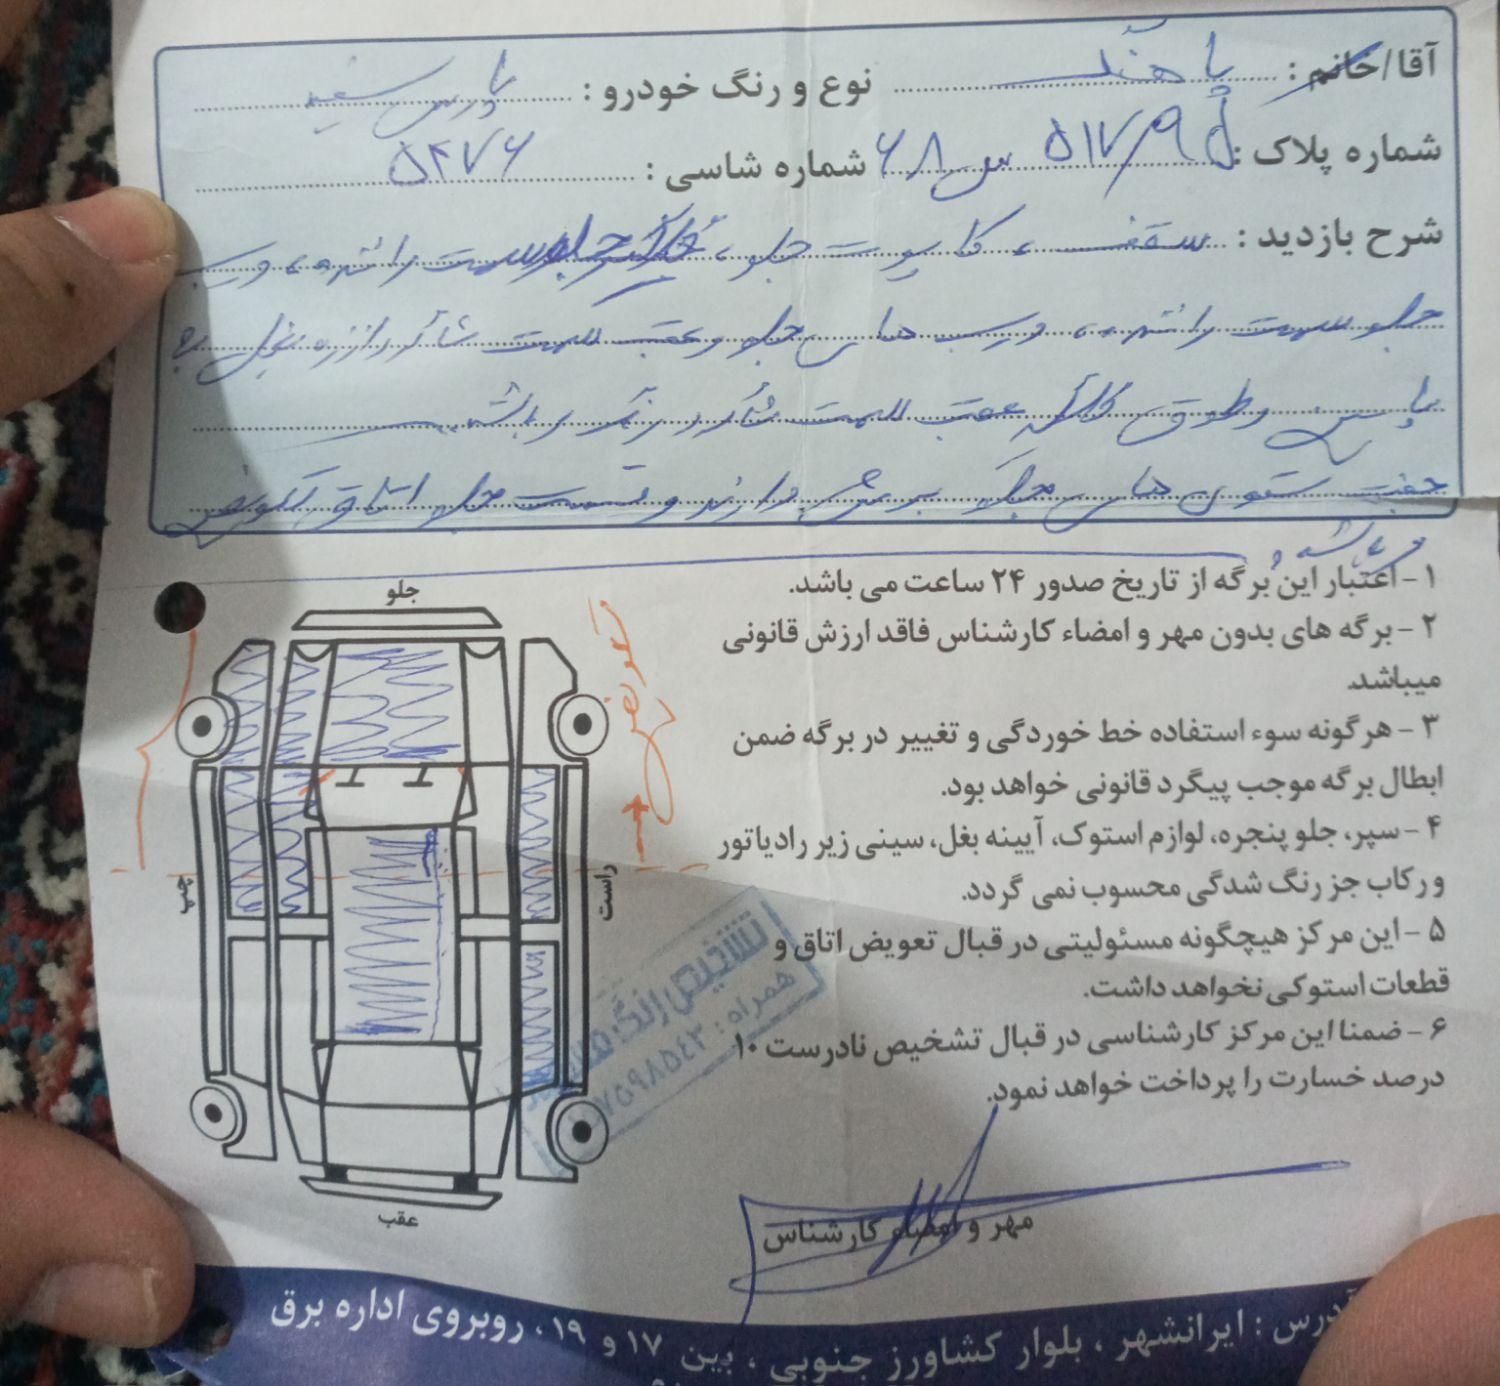 آقا/خانم: پاهنگ نوع و رنگ خودرو: پارس سفید
شماره پلاک: ۵۱۷ س ۶۸ شماره شاسی: ۵۴۷۶
شرح بازدید: سقف، کاپوت جلو، گلگیر جلو سمت راننده، درب
جلو سمت راننده، درب های جلو و عقب سمت شاگرد از زه بغل به
پایین و طوق گلگیر عقب سمت شاگرد رنگ میباشد
جفت ستون های جلو برش دارند و قسمت جلو اتاق تعویض
میباشد
۱- اعتبار این برگه از تاریخ صدور ۲۴ ساعت می باشد.
۲- برگه های بدون مهر و امضاء کارشناس فاقد ارزش قانونی
میباشد.
۳- هرگونه سوء استفاده خط خوردگی و تغییر در برگه ضمن
ابطال برگه موجب پیگرد قانونی خواهد بود.
۴- سپر، جلو پنجره، لوازم استوک، آیینه بغل، سینی زیر رادیاتور
و رکاب جز رنگ شدگی محسوب نمی گردد.
۵- این مرکز هیچگونه مسئولیتی در قبال تعویض اتاق و
قطعات استوکی نخواهد داشت.
۶- ضمنا این مرکز کارشناسی در قبال تشخیص نادرست ۱۰
درصد خسارت را پرداخت خواهد نمود.
مهر و امضاء کارشناس
جلو
تعویض
چپ
راست
عقب
تشخیص رنگ
همراه:
آدرس: ایرانشهر، بلوار کشاورز جنوبی، بین ۱۷ و ۱۹، روبروی اداره برق